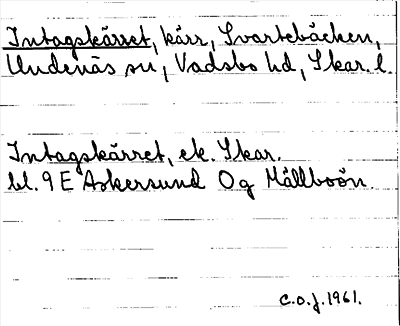 Intagskärret, kärr, Svartebäcken,
Undenäs sn, Vadsbo hd, Skar. l.
Intagskärret, ek. Skar.
bl. 9 E Askersund 0g Mållboön.
C.O.J. 1961.